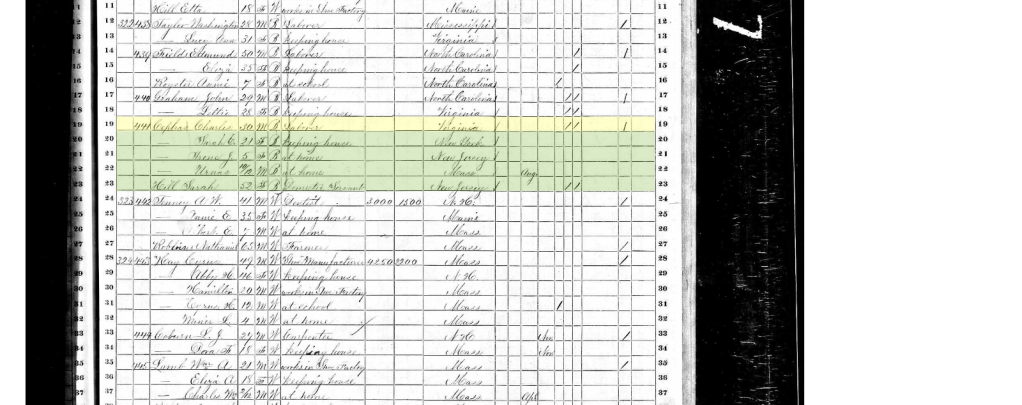 11 Hill Etta 18 F W works in Shoe Factory Maine 11
12 322 438 Taylor Washington 28 M B Laborer Mississippi 1 12
13 — Lucy Ann 31 F B Keeping house Virginia 13
14 439 Fields Edmund 50 M B Laborer North Carolina 1 1 14
15 — Eliza 35 F B Keeping house North Carolina 1 15
16 Royster Annie 7 F B at school North Carolina 1 16
17 440 Graham John 29 M B Laborer North Carolina 1 1 1 17
18 — Lettie 28 F B Keeping house Virginia 1 1 18
19 441 Charles 30 M B Laborer Virginia 1 1 1 19
20 — Sarah E. 21 F B Keeping house New York 20
21 — Irena J. 5 F B at home New Jersey 21
22 — M B at home Mass Aug 22
23 Hill Sarah 52 F B Domestic Servant New Jersey 1 1 23
24 323 442 Tenney A. W. 41 M W Dentist 3000 1500 N. H. 1 24
25 — Annie E. 35 F W Keeping house Maine 25
26 — E. 7 M W at home Mass 26
27 Robbins Nathaniel 65 M W Farmer Mass 1 27
28 324 443 Hay Cyrus 49 M W Shoe Manufacturer 4250 2200 Mass 1 28
29 — Abby H. 46 F W Keeping house N. H. 29
30 — Hamilton 20 M W works in Shoe Factory Mass 30
31 — Cyrus H. 12 M W at school Mass 1 31
32 — Minnie L. 4 W at home Mass 32
33 444 Coburn L. J. 27 M W Carpenter N. H. 1 33
34 — Dora F. 18 F W Keeping house Mass 34
35 445 Lamb Wm A. 21 M W works in Shoe Factory Mass 1 35
36 — Eliza A. 18 F W Keeping house Mass 36
37 — Charles Wm M W at home Mass Apl 37